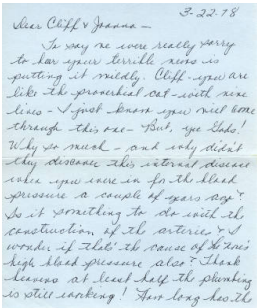 3-22-78
Dear Cliff & Joanna -
To say we were really sorry
to hear your terrible news is
putting it mildly. Cliff - you are
like the proverbial cat - with nine
lives - I just know you will come
through this one - But, ye Gods!
Why so much - and why didn't
they discover this internal disease
when you were in for the blood
pressure a couple of years ago?
Is it something to do with the
construction of the arteries? I
wonder if that's the cause of
high blood pressure also? Thank
heavens at least half the plumbing
is still working! How long has the